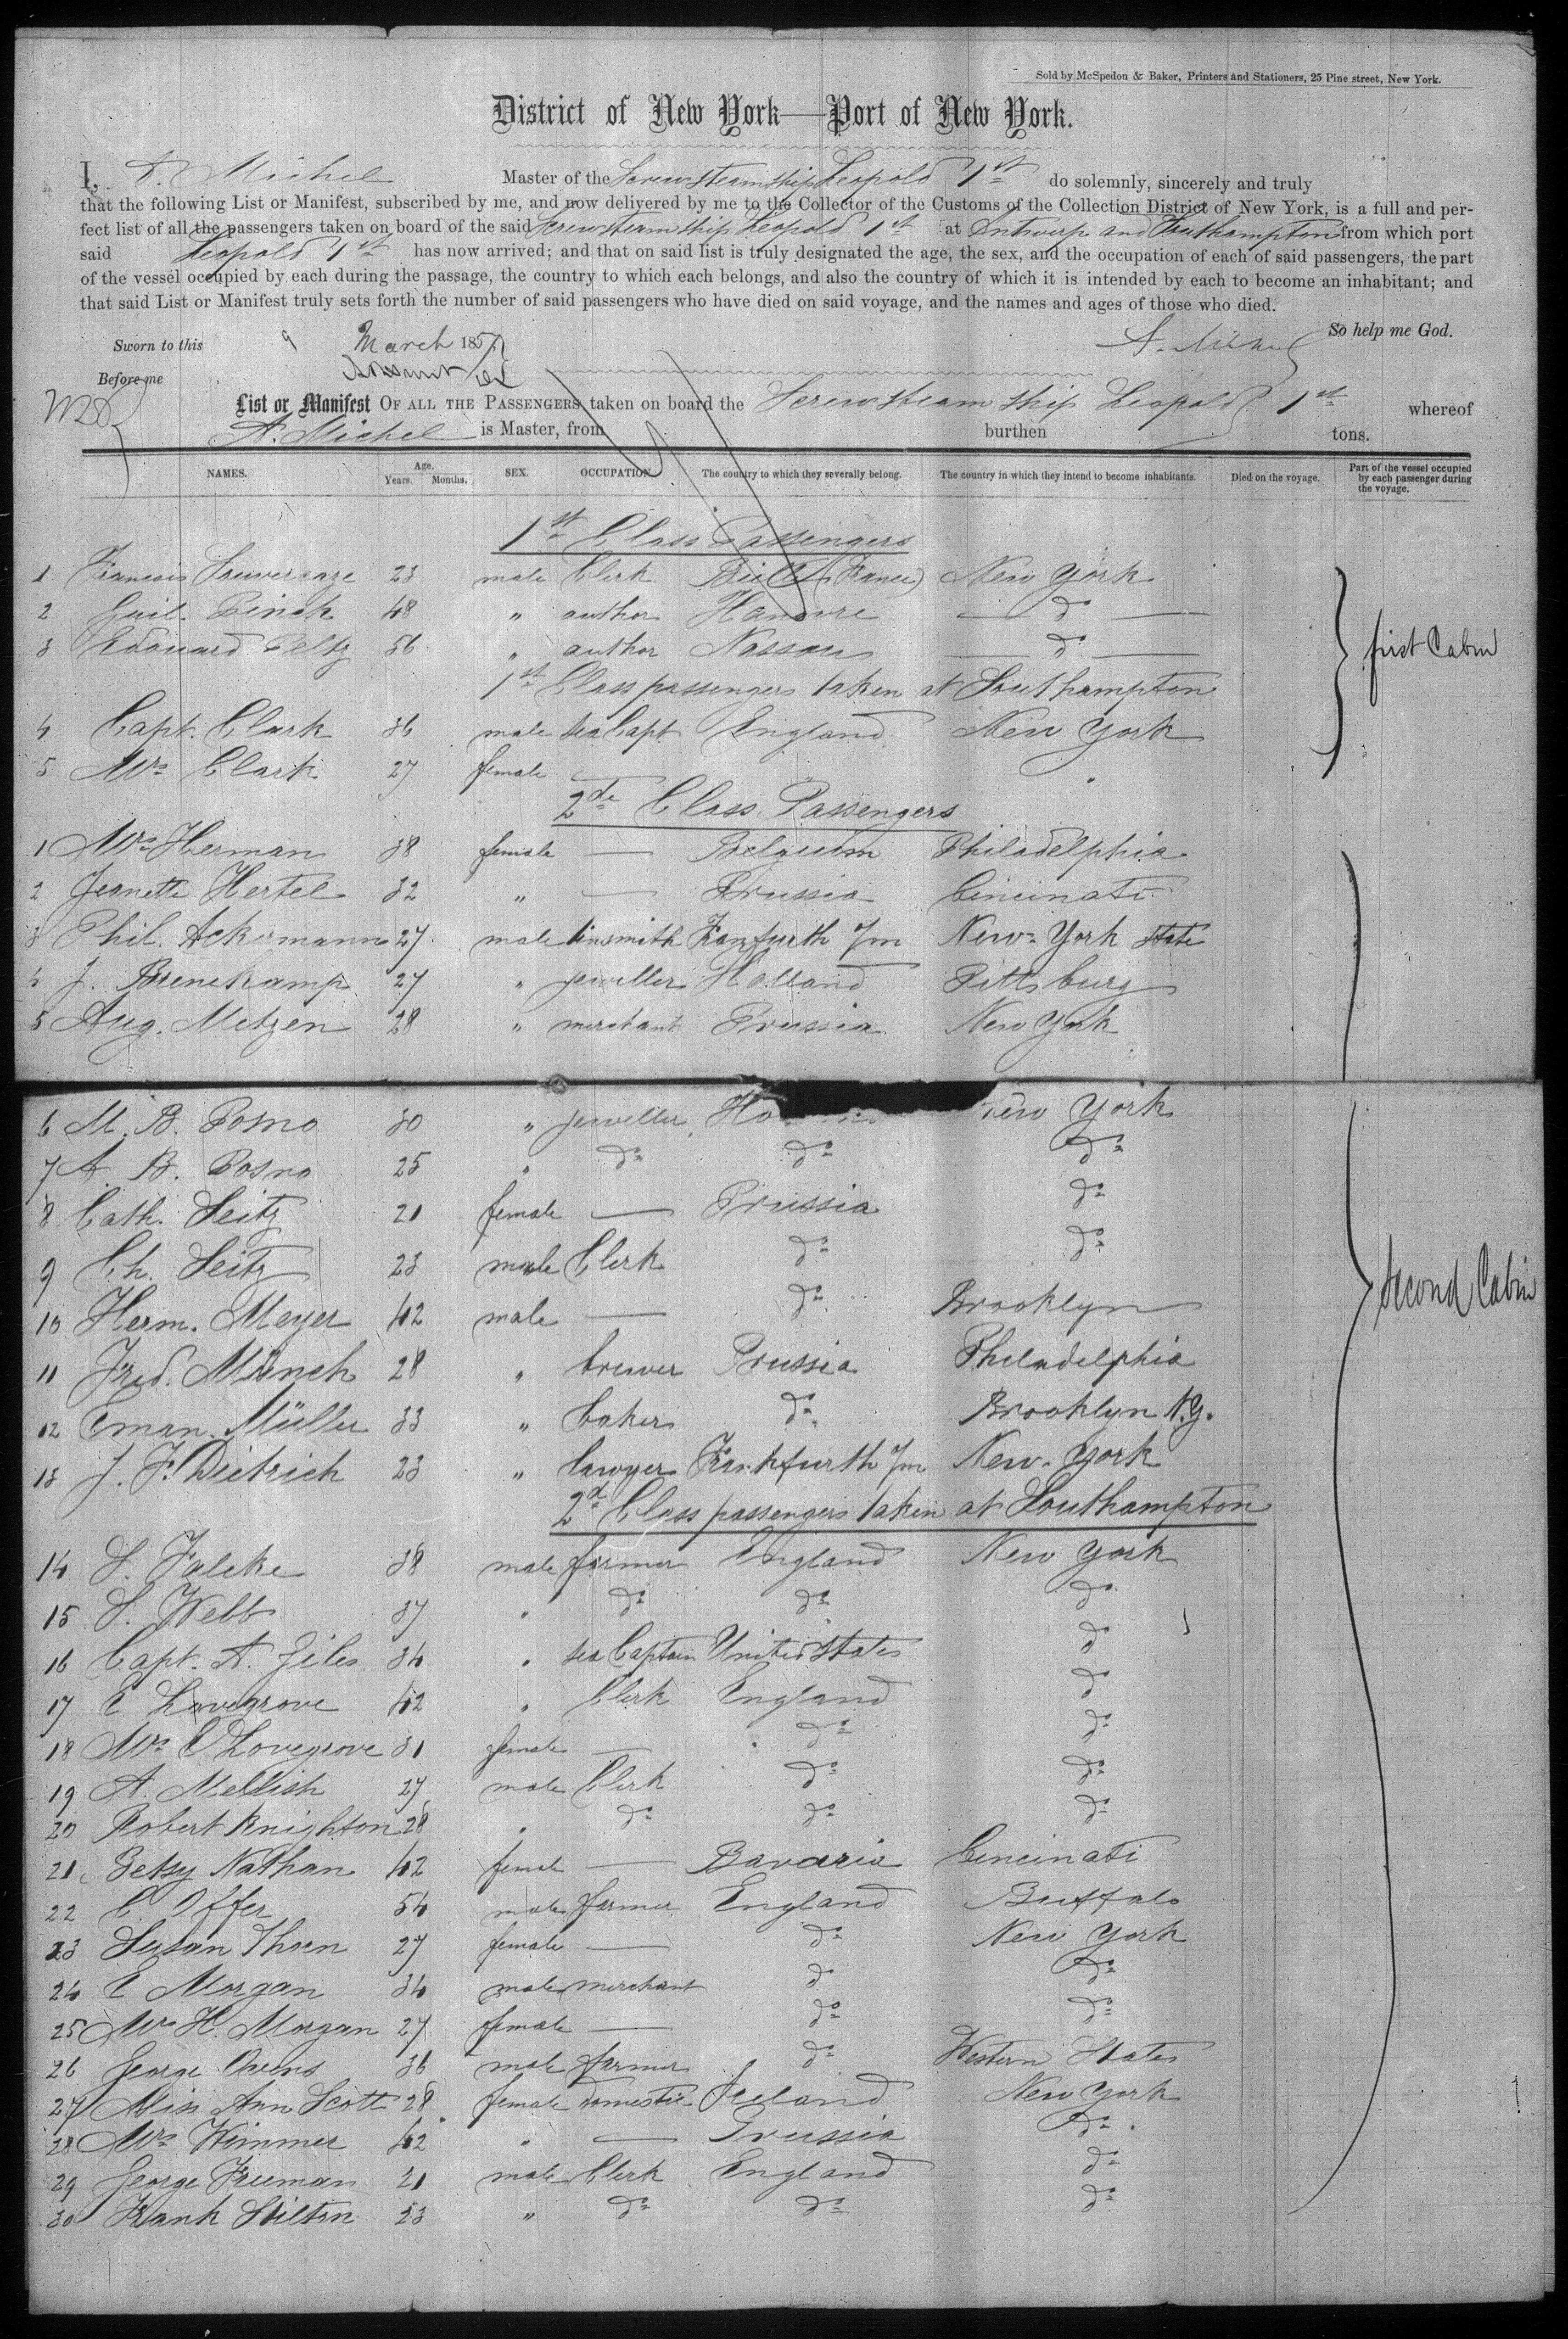 Sold by McSpedon & Baker, Printers and Stationers, 25 Pine street, New York.
District of New York—Port of New York.
I, A. Michel Master of the Screw steam ship Leopold 1st do solemnly, sincerely and truly
that the following List or Manifest, subscribed by me, and now delivered by me to the Collector of the Customs of the Collection District of New York, is a full and per-
fect list of all the passengers taken on board of the said Screw steam ship Leopold 1st at Antwerp and Southampton from which port
said Leopold 1st has now arrived; and that on said list is truly designated the age, the sex, and the occupation of each of said passengers, the part
of the vessel occupied by each during the passage, the country to which each belongs, and also the country of which it is intended by each to become an inhabitant; and
that said List or Manifest truly sets forth the number of said passengers who have died on said voyage, and the names and ages of those who died.
So help me God.
Sworn to this 9 March 1857
A. Michel
Before me
List or Manifest OF ALL THE PASSENGERS taken on board the Screw steam ship Leopold 1st whereof
A. Michel is Master, from burthen tons.
NAMES. Age. Years. Months. SEX. OCCUPATION. The country to which they severally belong. The country in which they intend to become inhabitants. Died on the voyage. Part of the vessel occupied by each passenger during the voyage.
1st Class Passengers
1 23 male Clerk (France) New York
2 Guil. 48 " author Hanovre — do —
3 Edouard Peltz 56 " author Nassau — do —
first Cabin
1st Class passengers taken at Southampton
4 Capt. Clark 36 male sea Capt England New York
5 Mrs Clark 27 female "
2de Class Passengers
1 Mrs Herman 38 female — Belgium Philadelphia
2 Jeanette Hertel 32 " — Prussia Cincinati
3 Phil. Ackermann 27 male tinsmith Franfurth /m New-York state
4 J. Brenskamp 27 " jeweller Holland Pittsburg
5 Aug. Metzen 28 " merchant Prussia New York
6 M. B. Posno 30 " jeweller Ho New York
7 A. B. Posno 25 " do do do
8 Cath. Seitz 21 female — Prussia do
9 Ch. Seitz 23 male Clerk do do
10 Herm. Meyer 42 male — do Brooklyn
second Cabin
11 Fred. Münch 28 " brewer Prussia Philadelphia
12 Eman. Müller 33 " baker do Brooklyn N.Y.
13 J. F. Dietrich 23 " lawyer Frankfurth /m New-York
2d Class passengers taken at Southampton
14 S. Falcke 38 male farmer England New York
15 S. Webb 37 " do do do
16 Capt. A. Giles 34 " sea Captain United States do
17 E Lovegrove 42 " Clerk England do
18 Mrs E Lovegrove 31 female — do do
19 A. Mellish 27 male Clerk do do
20 Robert Knighton 28 " do do do
21 Betsy Nathan 42 female — Bavaria Cincinati
22 C. Offer 54 male farmer England Buffalo
23 Susan Thorn 27 female — do New York
24 E Morgan 34 male merchant do do
25 Mrs H. Morgan 27 female — do do
26 George Owens 36 male farmer do Western States
27 Miss Ann Scott 28 female domestic Ireland New York
28 Mrs Wimmer 42 " — Prussia do
29 George Freeman 21 male Clerk England do
30 Frank Stilton 23 " do do do